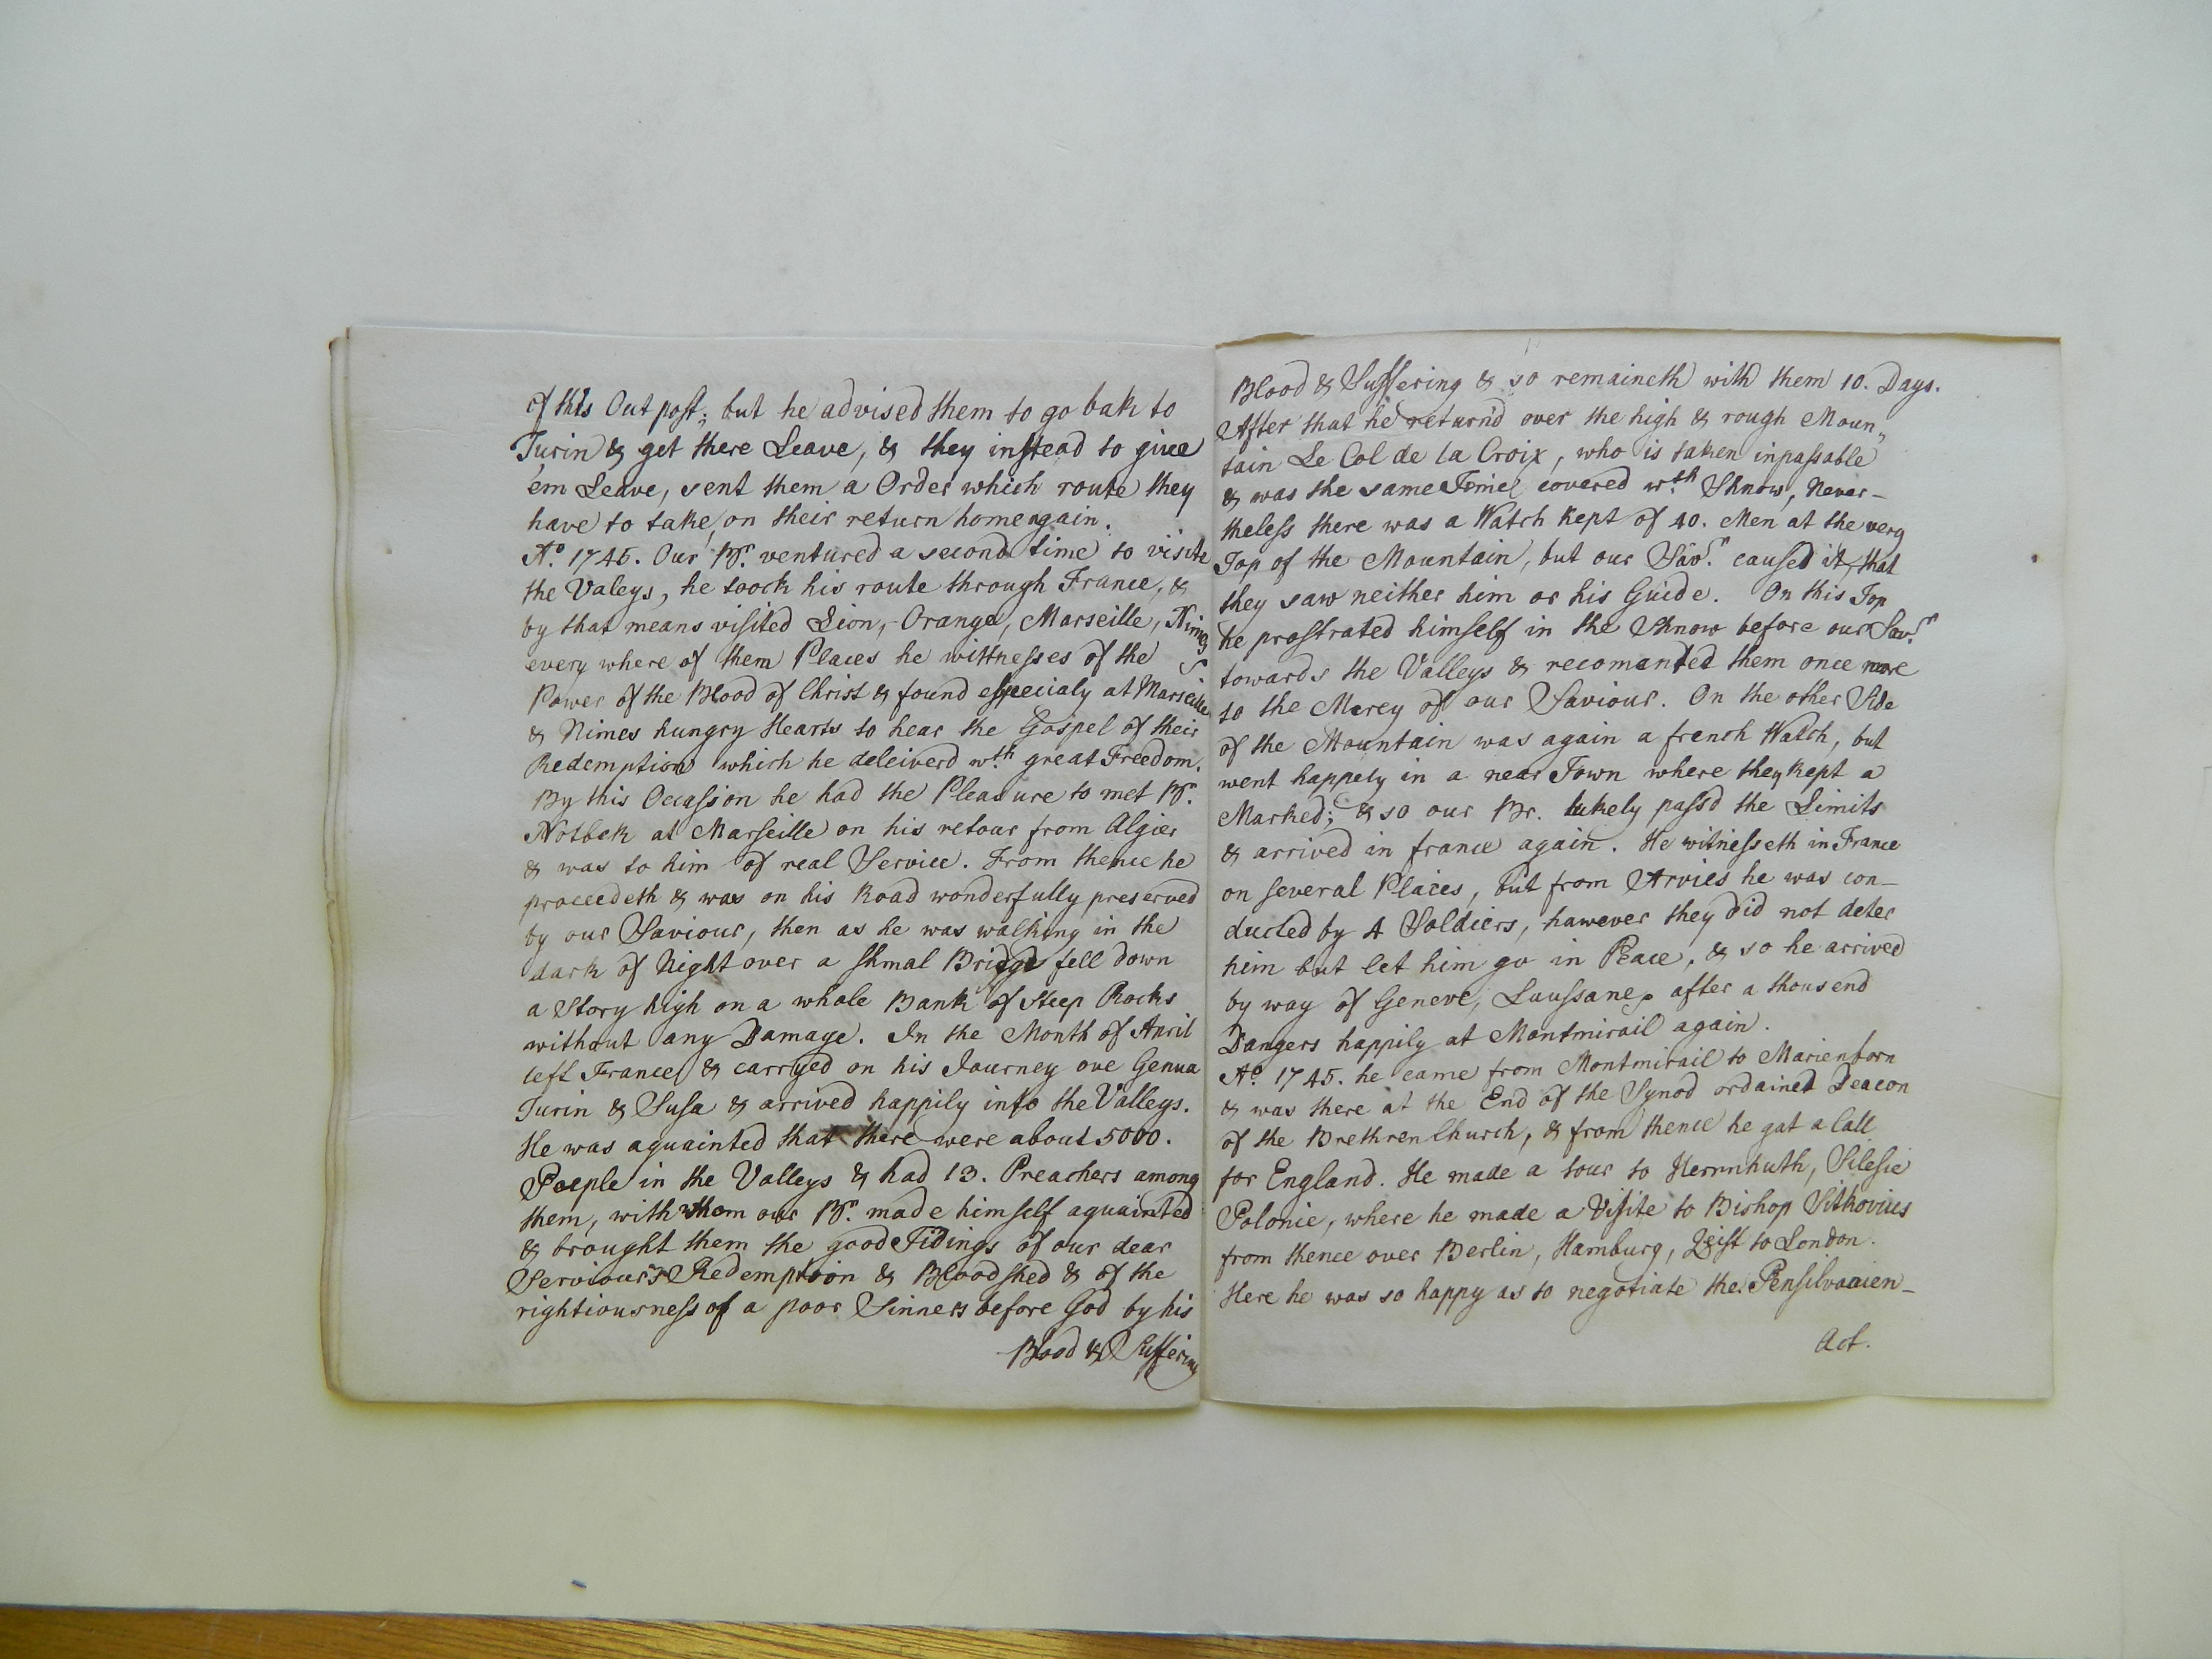 of this Out post; but he advised them to go bak to
Turin & get there Leave, & they instead to give
'em Leave, sent them a Order which route they
have to take, on their return home again.
Ao. 1745. Our Br. ventured a second time to visite
the Valeys, he toock his route through France, &
by that means visited Lion, Orange, Marseille, Nimes
every where of them Places he wittnesses of the
Power of the Blood of Christ & found especialy at Marseille
& Nimes hungry Hearts to hear the Gospel of their
Redemption which he deleiverd wth. great Freedom.
By this Occassion he had the Pleasure to met Br.
Notbek at Marseille on his retour from Algier
& was to him of real Service. From thence he
proceedeth & was on his Road wonderfully preserved
by our Saviour, then as he was walking in the
dark of Night over a shmal Bridge fell down
a Story high on a whole Bank of Steep Rocks
without any Damage. In the Month of April
left France & carryed on his Journey ove Genua
Turin & Susa & arrived happily into the Valleys.
He was aquainted that there were about 5000.
People in the Valleys & had 13. Preachers among
them, with whom our Br. made himself aquainted
& brought them the good Tidings of our dear
Serviour's Redemption & Bloodshed & of the
rightiousness of a poor Sinners before God by his
Blood & Suffering
Blood & Suffering & so remaineth with them 10. Days.
After that he return'd over the high & rough Moun„
tain Le Col de la Croix, who is taken inpassable
& was the same Time covered wth. Shnow, Never-
theless there was a Watch kept of 40. Men at the very
Top of the Mountain, but our Savr. caused it, that
they saw neither him or his Guide. On this Top
he prostrated himself in the Shnow before our Savr.
towards the Valleys & recomanted them once more
to the Mercy of our Saviour. On the other Side
of the Mountain was again a french Watch, but
went happely in a near Town where they kept a
Marked; & so our Br. lukely pass'd the Limits
& arrived in france again. He witnesseth in France
on several Places, but from Arvies he was con-
ducted by 4 Soldiers, hawever they did not deter
him but let him go in Peace, & so he arrived
by way of Geneve, Laussane, after a thousend
Dangers happily at Montmirail again.
Ao. 1745. he came from Montmirail to Marienborn
& was there at the End of the Synod ordained Deacon
of the Brethren Church, & from thence he gat a Call
for England. He made a tour to Herrnhuth, Silesie
Polonie, where he made a Visite to Bishop Sithovius
from thence over Berlin, Hamburg, Zeist to London.
Here he was so happy as to negotiate the Pensilvanien-
Act.